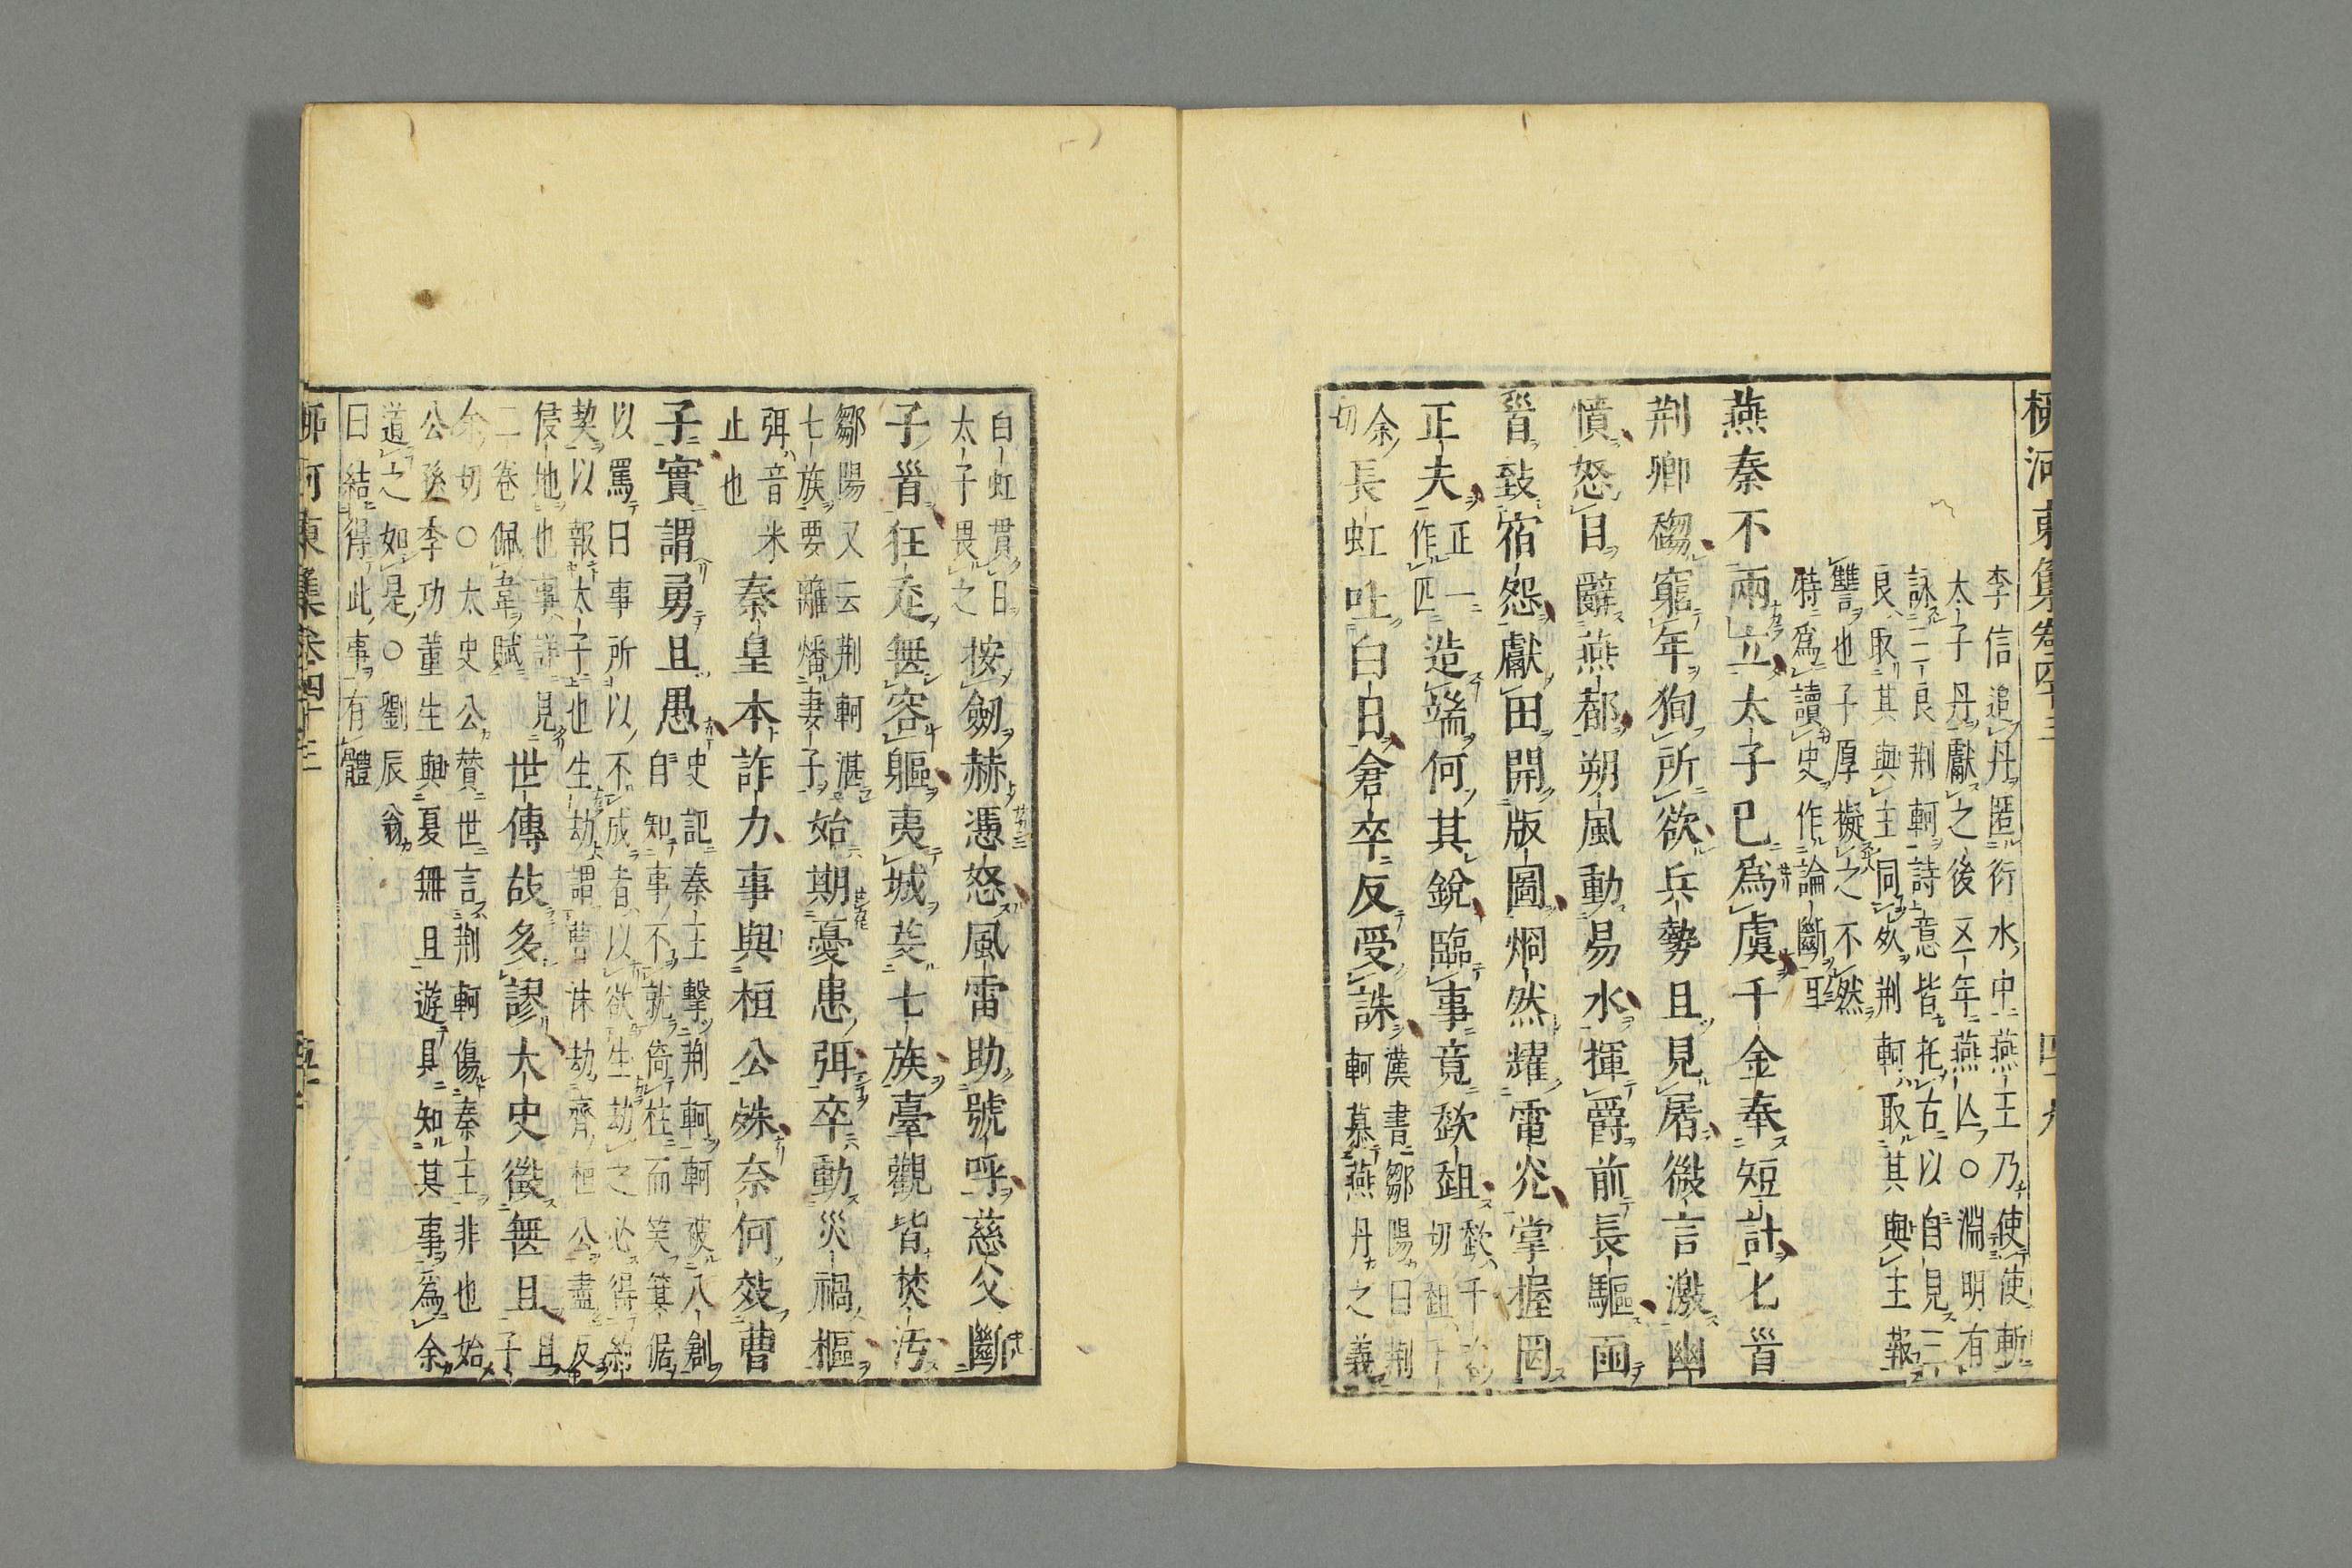 李信追丹匿衍水中燕王乃使使斬
太子丹獻之後五年燕亡○淵明有
詠三良荊軻詩意皆托古以自見三
良取其與主同死荊軻取其與主報
讐也子厚擬之不然
特爲讀史作論斷耳
燕秦不兩立太子已爲虞千金奉短計匕首
荊卿趨窮年狥所欲兵勢且見屠微言激幽
憤怒目辭燕都朔風動易水揮爵前長驅函
首致宿怨獻田開版圖烱然耀電光掌握罔
正夫正一作四造端何其銳臨事竟趑趄趑千余切趄千
余切長虹吐白日倉卒反受誅漢書鄒陽曰荊軻慕燕丹之義
白虹貫日太子畏之按劒赫憑怒風雷助號呼慈父斷
子首狂走無容軀夷城芟七族臺觀皆焚汚
鄒陽又云荊軻湛七族要離燔妻子始期憂患弭卒動災禍樞
弭音米止也秦皇本詐力事與桓公殊奈何效曹
子實謂勇且愚史記秦王擊荊軻軻被八創自知事不就倚柱而笑箕倨
以罵曰事所以不成者以欲生劫之必得約
契以報太子也生劫謂曹沫劫齊桓公盡反
侵地也事詳見
二卷佩韋賦世傳故多謬太史徵無且且子
余切○太史公贊世言荊軻傷秦王非也始
公孫季功董生與夏無且遊具知其事爲余
道之如是○劉辰翁
曰結得此事有體